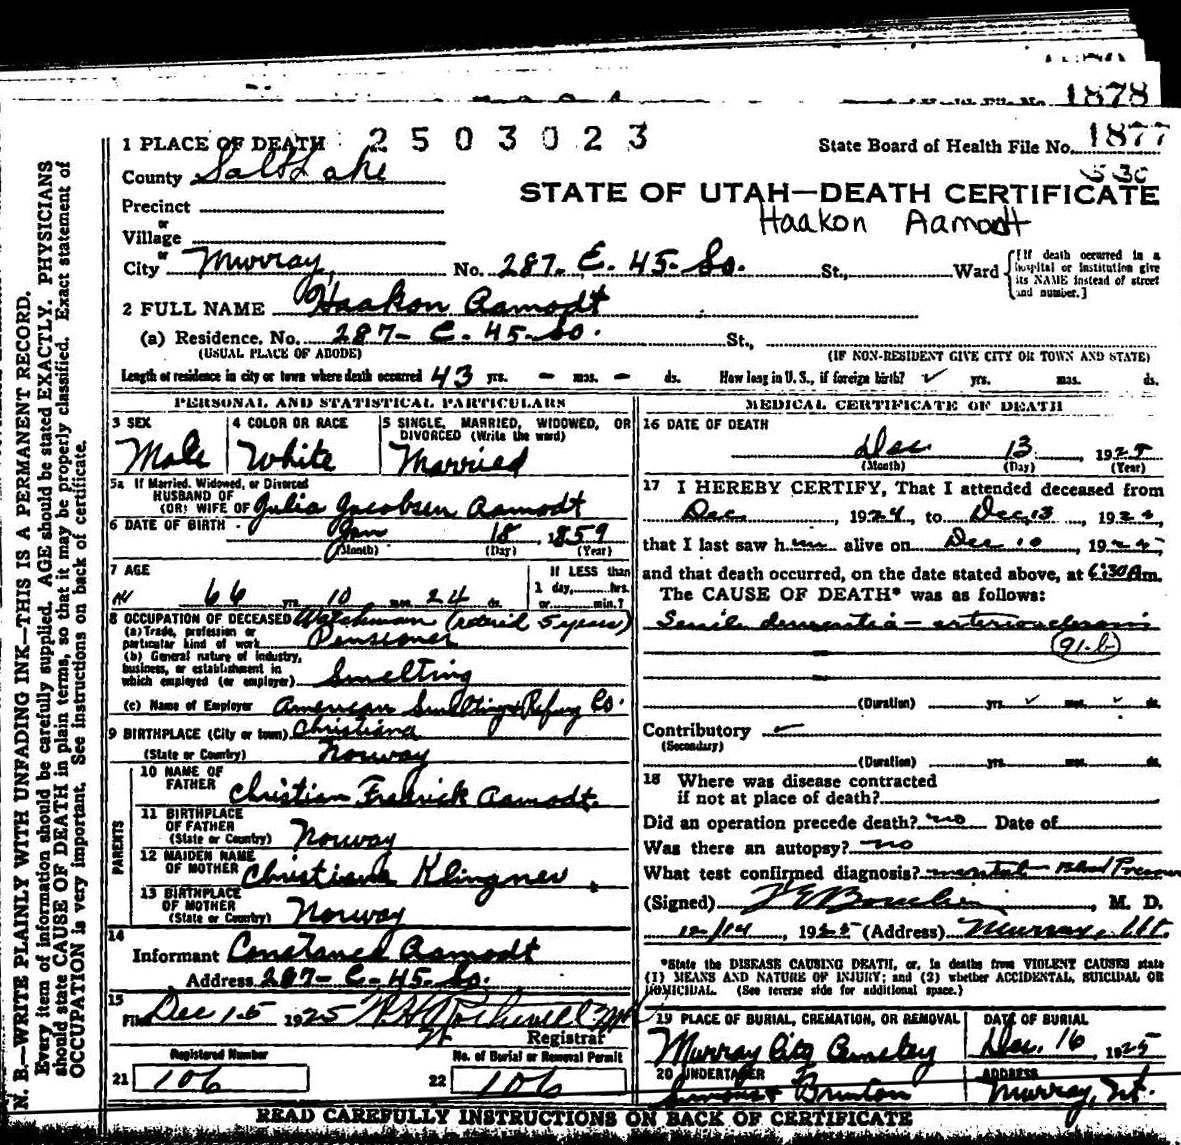 1878
1 PLACE OF DEATH 2503023
State Board of Health File No. 1877
County Salt Lake
530
STATE OF UTAH—DEATH CERTIFICATE
Precinct
Haakon Aamodt
or
Village
or
City Murray, No. 287- E. 45- So. St., Ward
[If death occurred in a hospital or institution give its NAME instead of street and number.]
2 FULL NAME Haakon Aamodt
(a) Residence. No. 287- E- 45- So. St.,
(USUAL PLACE OF ABODE) (IF NON-RESIDENT GIVE CITY OR TOWN AND STATE)
Length of residence in city or town where death occurred 43 yrs. - mos. - ds. How long in U. S., if foreign birth? ✓ yrs. mos. ds.
PERSONAL AND STATISTICAL PARTICULARS
3 SEX
Male
4 COLOR OR RACE
White
5 SINGLE, MARRIED, WIDOWED, OR
DIVORCED (Write the word)
Married
5a If Married, Widowed, or Divorced
HUSBAND OF
(OR) WIFE OF Julia Jacobsen Aamodt
6 DATE OF BIRTH Jan 18, 1859
(Month) (Day) (Year)
7 AGE
66 yrs. 10 mos. 24 ds.
If LESS than
1 day, hrs.
or min.?
8 OCCUPATION OF DECEASED Watchman (retired 5 years)
(a) Trade, profession or
particular kind of work Pensioner
(b) General nature of industry,
business, or establishment in
which employed (or employer) Smelting
(c) Name of Employer American Smelting & Refng Co.
9 BIRTHPLACE (City or town) Christiana
(State or Country) Norway
PARENTS
10 NAME OF
FATHER Christian Fredrick Aamodt.
11 BIRTHPLACE
OF FATHER
(State or Country) Norway
12 MAIDEN NAME
OF MOTHER Christiana Klingner
13 BIRTHPLACE
OF MOTHER
(State or Country) Norway
14
Informant Constance Aamodt
Address 287- E- 45- So.
15
Filed Dec 15 1925
Registrar
Registered Number
21 106
No. of Burial or Removal Permit
22 106
MEDICAL CERTIFICATE OF DEATH
16 DATE OF DEATH
Dec 13, 1925
(Month) (Day) (Year)
17 I HEREBY CERTIFY, That I attended deceased from
Dec, 1924, to Dec, 13, 192
that I last saw h im alive on Dec 10, 1925
and that death occurred, on the date stated above, at 6:30 Am.
The CAUSE OF DEATH* was as follows:
Senile dementia - arteriosclerosis
91-b
(Duration) yrs ✓ mos. ✓ ds.
Contributory ✓
(Secondary)
(Duration) yrs. mos. ds.
18 Where was disease contracted
if not at place of death?
Did an operation precede death? no Date of
Was there an autopsy? no
What test confirmed diagnosis? mental - Blood Pressure
(Signed) , M. D.
12/14, 1925 (Address) Murray, Ut.
*State the DISEASE CAUSING DEATH, or, in deaths from VIOLENT CAUSES state
(1) MEANS AND NATURE OF INJURY; and (2) whether ACCIDENTAL, SUICIDAL OR
HOMICIDAL. (See reverse side for additional space.)
19 PLACE OF BURIAL, CREMATION, OR REMOVAL
Murray City Cemetery
DATE OF BURIAL
Dec. 16, 1925
20 UNDERTAKER
Simons & Brunton
ADDRESS
Murray, Ut.
READ CAREFULLY INSTRUCTIONS ON BACK OF CERTIFICATE
N. B.—WRITE PLAINLY WITH UNFADING INK—THIS IS A PERMANENT RECORD.
Every item of information should be carefully supplied. AGE should be stated EXACTLY. PHYSICIANS
should state CAUSE OF DEATH in plain terms, so that it may be properly classified. Exact statement of
OCCUPATION is very important. See instructions on back of certificate.